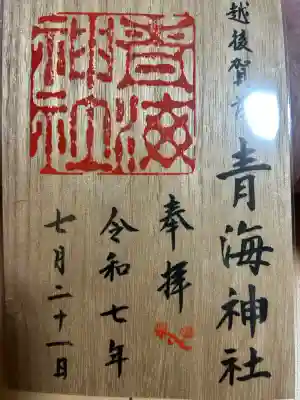 越後賀茂
青海神社
奉拝
令和七年
七月二十一日
青海
神社